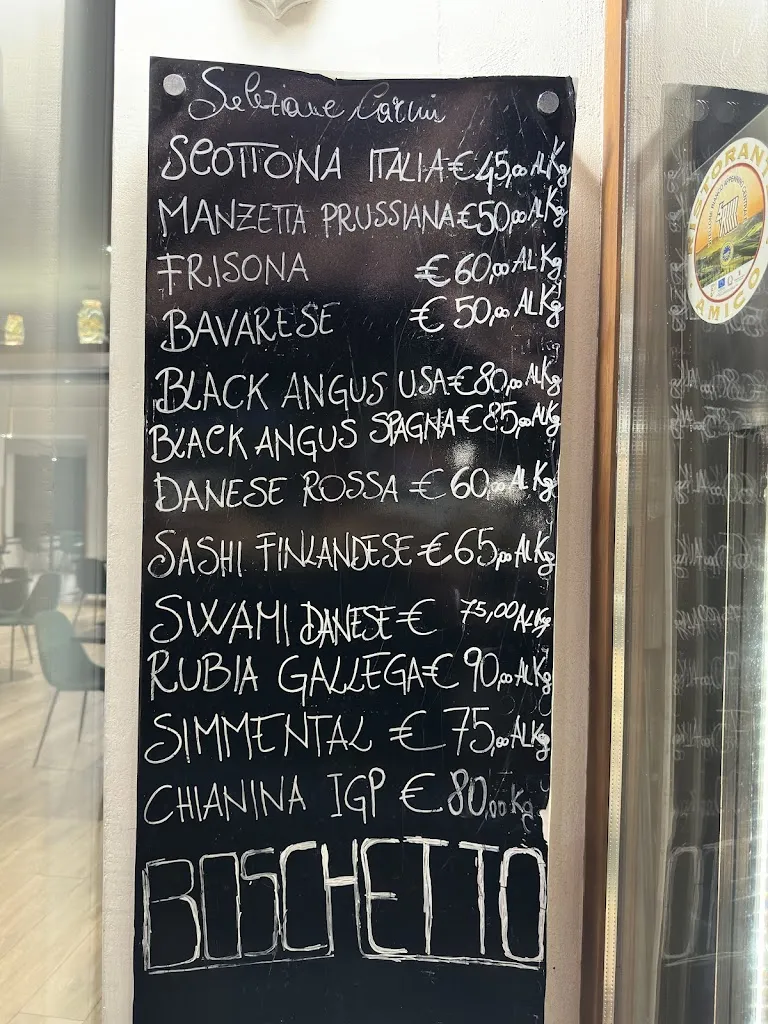 Selezione Carni
SCOTTONA ITALIA € 45,00 AL Kg
MANZETTA PRUSSIANA € 50,00 AL Kg
FRISONA € 60,00 AL Kg
BAVARESE € 50,00 AL Kg
BLACK ANGUS USA € 80,00 AL Kg
BLACK ANGUS SPAGNA € 85,00 AL Kg
DANESE ROSSA € 60,00 AL Kg
SASHI FINLANDESE € 65,00 AL Kg
SWAMI DANESE € 75,00 AL Kg
RUBIA GALLEGA € 90,00 AL Kg
SIMMENTAL € 75,00 AL Kg
CHIANINA IGP € 80,00 Kg
BOSCHETTO
AMICO